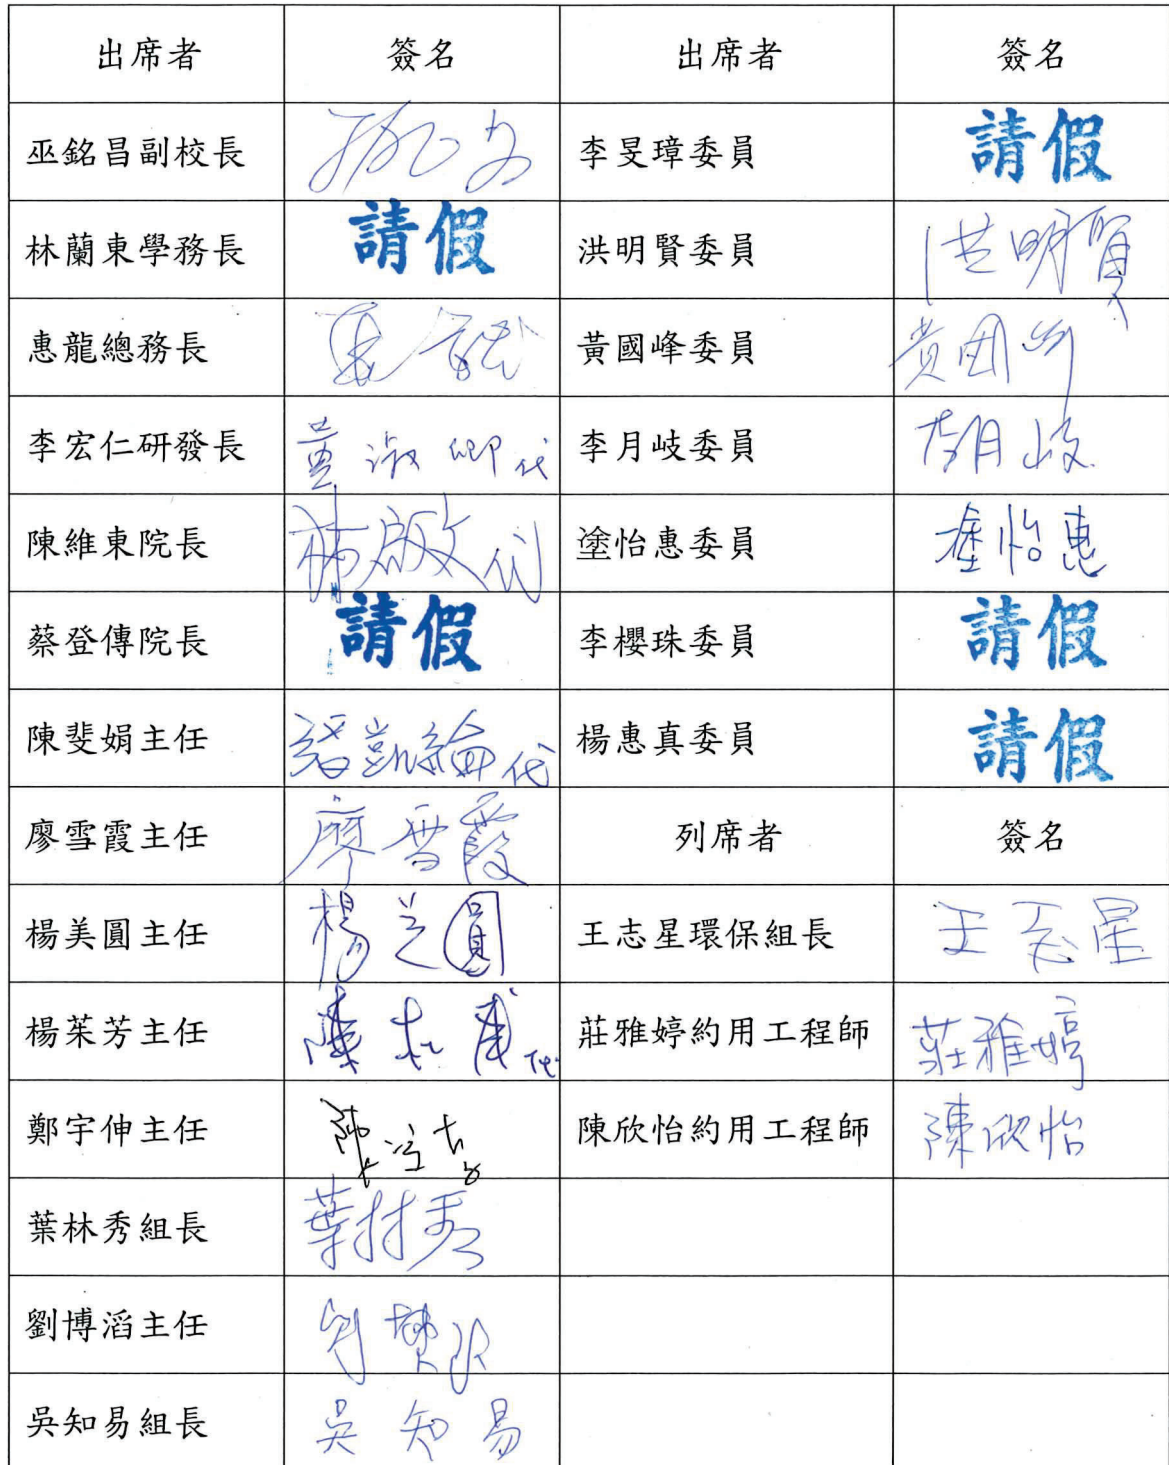 出席者 簽名 出席者 簽名
巫銘昌副校長 李旻璋委員 請假
林蘭東學務長 請假 洪明賢委員 洪明賢
惠龍總務長 惠龍 黃國峰委員 黃國峰
李宏仁研發長 董淑卿代 李月岐委員 李月岐
陳維東院長 代 塗怡惠委員 塗怡惠
蔡登傳院長 請假 李櫻珠委員 請假
陳斐娟主任 凱綸代 楊惠真委員 請假
廖雪霞主任 廖雪霞 列席者 簽名
楊美圓主任 楊美圓 王志星環保組長 王志星
楊茱芳主任 陳 代 莊雅婷約用工程師 莊雅婷
鄭宇伸主任 陳欣怡約用工程師 陳欣怡
葉林秀組長 葉林秀
劉博滔主任
吳知易組長 吳知易